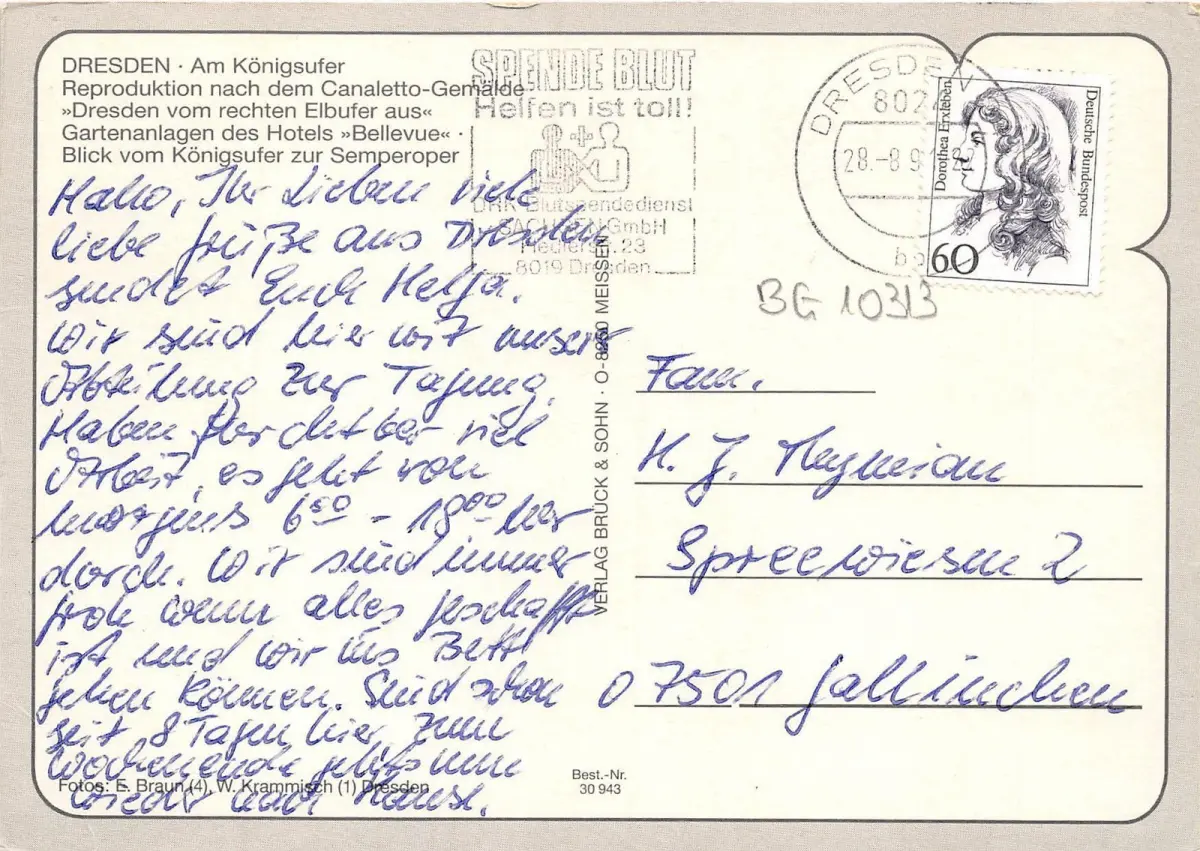 DRESDEN · Am Königsufer
Reproduktion nach dem Canaletto-Gemälde
»Dresden vom rechten Elbufer aus«
Gartenanlagen des Hotels »Bellevue« ·
Blick vom Königsufer zur Semperoper
Hallo, Ihr Lieben viele
liebe Grüße aus Dresden
sendet Euch Helga.
Wir sind hier mit unserer
Abteilung zur Tagung.
Haben furchtbar viel
Arbeit, es geht von
morgens 6 – 18 00 hier
durch. Wir sind immer
froh wenn alles geschafft
ist und wir ins Bett
gehen können. Sind schon
seit 8 Tagen hier, zum
Wochenende geht's nun
wieder nach Hause.
Fotos: E. Braun (4), W. Krammisch (1) Dresden
SPENDE BLUT
Helfen ist toll!
DRK-Blutspendedienst
SACHSEN GmbH
23
8019 Dresden
VERLAG BRÜCK & SOHN · O-8250 MEISSEN
Best.-Nr.
30 943
DRESDEN
28.-8.9
Dorothea Erxleben
Deutsche Bundespost
60
BG 10313
Fam.
H. J.
Spreewiesen 2
O 7501 Gallinchen